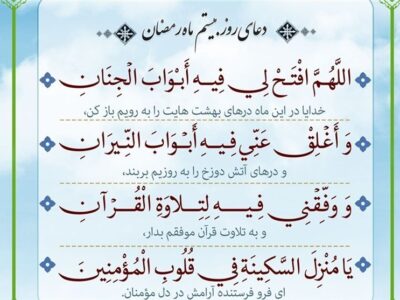 دعای روز بیستم ماه رمضان
اللَّهُمَّ افْتَحْ لِي فِيهِ أَبْوَابَ الْجِنَانِ
خدایا در این ماه درهای بهشت هایت را به رویم باز کن،
وَ أَغْلِقْ عَنِّي فِيهِ أَبْوَابَ النِّيرَانِ
و درهای آتش دوزخ را به روزیم بربند،
وَ وَفِّقْنِي فِيهِ لِتِلَاوَةِ الْقُرْآنِ
و به تلاوت قرآن موفقم بدار،
يَا مُنْزِلَ السَّكِينَةِ فِي قُلُوبِ الْمُؤْمِنِينَ
ای فرو فرستنده آرامش در دل مؤمنان.